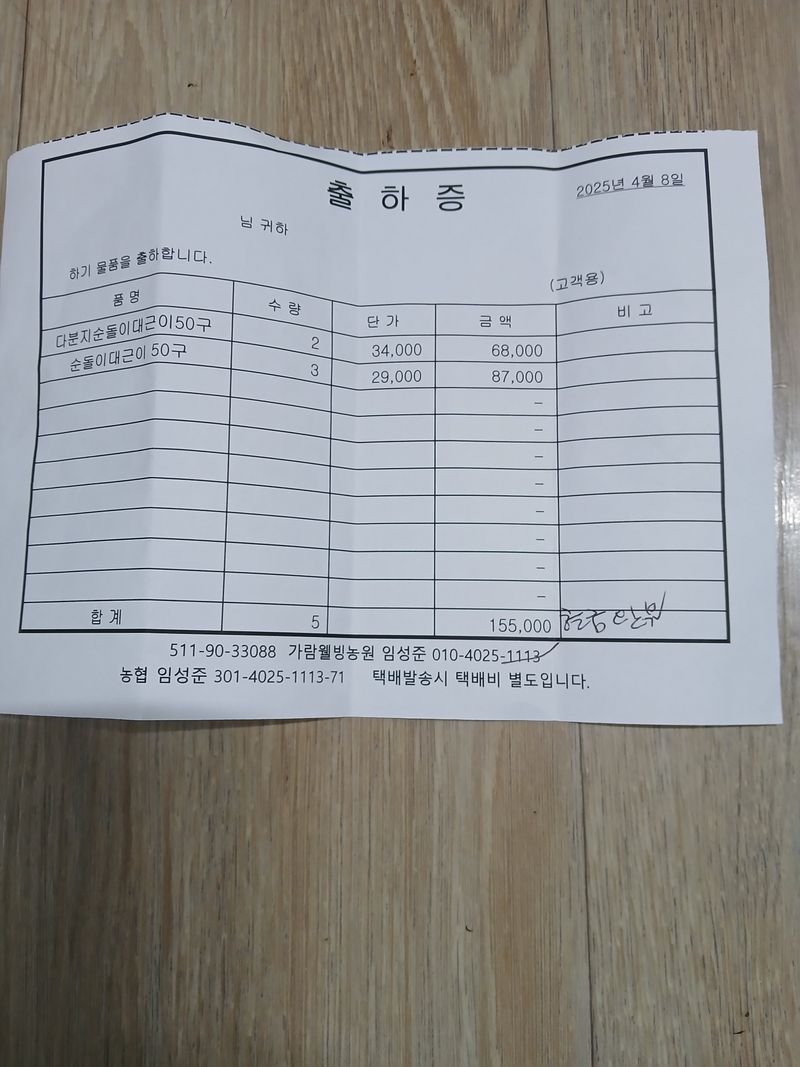 출 하 증
2025년 4월 8일
님 귀하
하기 물품을 출하합니다.
(고객용)
품 명 수 량 단 가 금 액 비 고
다분지순돌이대근이50구 2 34,000 68,000
순돌이대근이 50구 3 29,000 87,000
–
–
–
–
–
–
–
–
합 계 5 155,000 현금완불
511-90-33088 가람웰빙농원 임성준 010-4025-1113
농협 임성준 301-4025-1113-71 택배발송시 택배비 별도입니다.